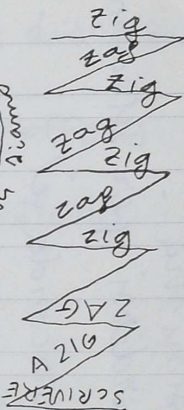 zig
zag
zig
zag
zig
zag
zig
ZAG
A ZIG
SCRIVERE